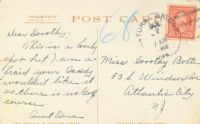 POST CARD
68
Dear Dorothy:
This is a lovely
spot but I am a-
fraid your Daddy
wouldn't like it
as there is no golf
course.
Aunt Edna
Miss Dorothy
53 S. Windsor Ave
Atlantic City
N.J.